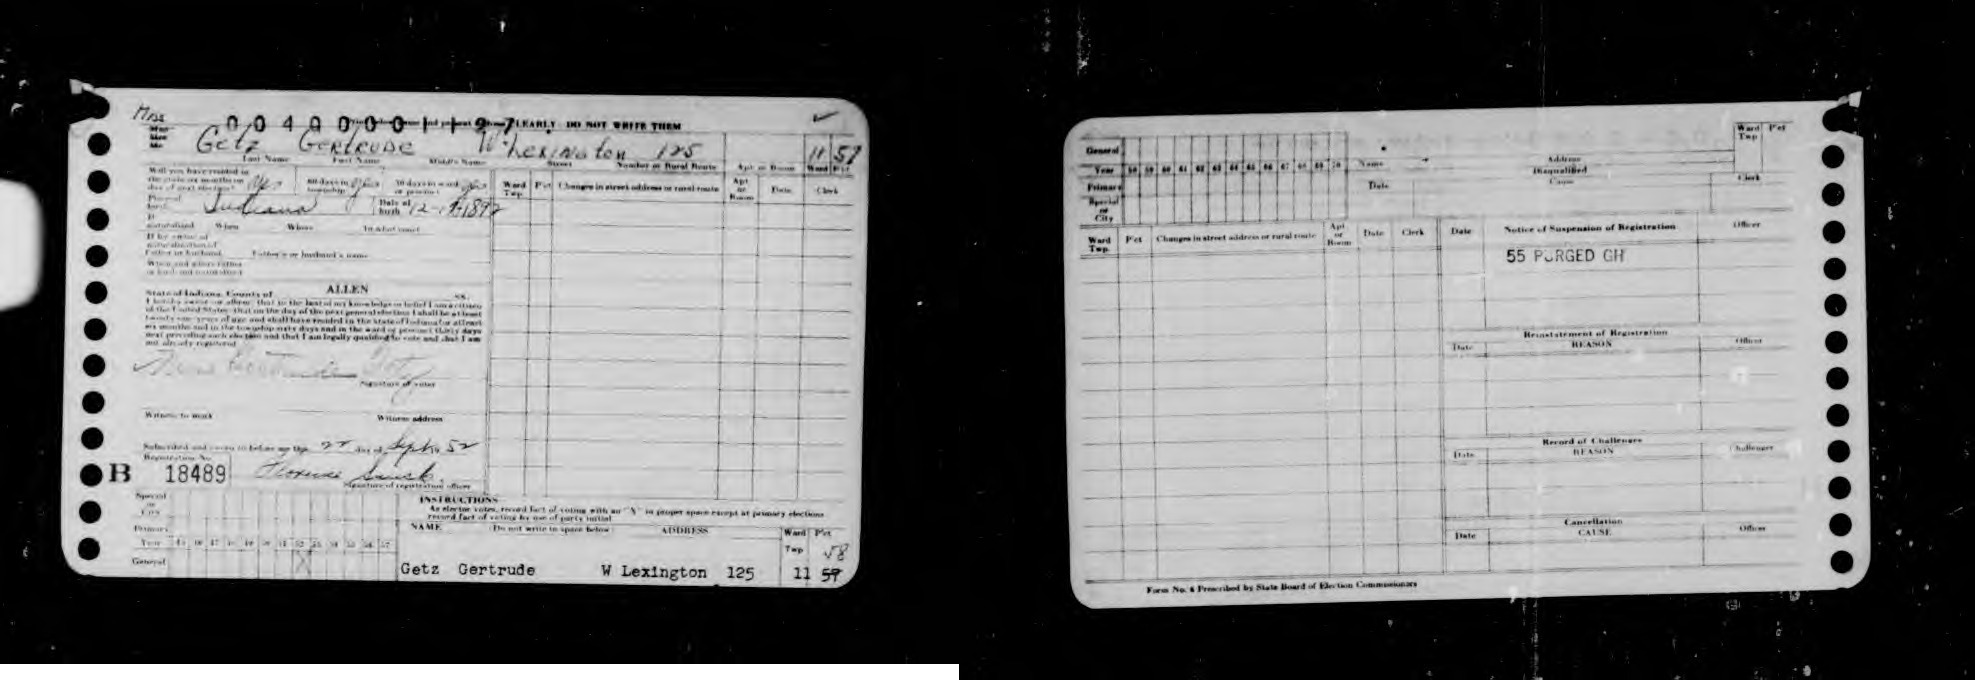 Miss
0 0 4 0 0 0 0 1 1 2 7 CLEARLY DO NOT WRITE THEM
Getz Gertrude W. Lexington 125 11 57
Last Name First Name Middle Name Street Number or Rural Route Apt or Room Ward Pct
Will you have resided in
the state six months on
day of next election? Yes 60 days in township Yes 30 days in ward or precinct Yes
Ward Twp Pct Changes in street address or rural route Apt or Room Date Clerk
Place of birth Indiana Date of birth
If naturalized When Where
If by virtue of
naturalization of
Father or husband Father's or husband's name
When and where father
State of Indiana, County of ALLEN ss.
I hereby swear or affirm that to the best of my knowledge or belief I am a citizen
of the United States; that on the day of the next general election I shall be at least
twenty-one years of age and shall have resided in the state of Indiana for at least
six months and in the township sixty days and in the ward or precinct thirty days
next preceding such election and that I am legally qualified to vote and that I am
not already registered
Miss Gertrude Getz
Signature of voter
Witness to mark Witness address
Subscribed and sworn to before me this 22 day of Sept 19 52
Registration No.
B 18489 Florence
Signature of registration officer
Special or City
Primary
Year 45 46 47 48 49 50 51 52 53 54 55 56 57
General X
INSTRUCTIONS
As elector votes, record fact of voting with an "X" in proper space except at primary elections
record fact of voting by use of party initial
NAME (Do not write in space below) ADDRESS Ward Twp Pct
58
Getz Gertrude W Lexington 125 11 57
General
Year 58 59 60 61 62 63 64 65 66 67 68 69 70
Primary
Special or City
Name Address Ward Twp Pct
Disqualified
Date Cause Clerk
Ward Twp. Pct Changes in street address or rural route Apt or Room Date Clerk
Date Notice of Suspension of Registration Officer
55 PURGED GH
Reinstatement of Registration
Date REASON Officer
Record of Challenges
Date REASON Challenger
Cancellation
Date CAUSE Officer
Form No. 6 Prescribed by State Board of Election Commissioners